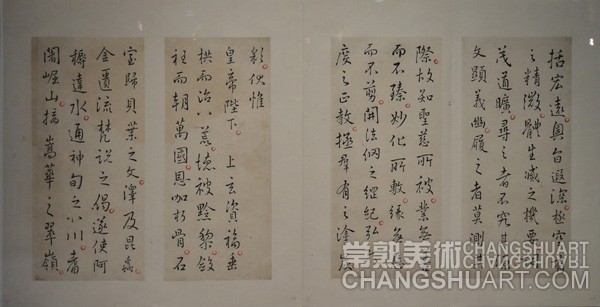 括宏遠奧旨遐深極空有
之精微體生滅之機要詞
茂道曠尋之者不究其源
文顯義幽履之者莫測其
際故知聖慈所被業無善
而不臻妙化所敷緣無惡
而不剪開法網之綱紀弘六
度之正教拯羣有之塗炭
彩伏惟
皇帝陛下 上玄資福垂
拱而治八荒德被黔黎斂
衽而朝萬國恩加朽骨石
室歸貝葉之文澤及昆蟲
金匱流梵說之偈遂使阿
耨達水通神甸之八川耆
闍崛山接嵩華之翠嶺
常熟美術CHANGSHUART
CHANGSHUART.COM